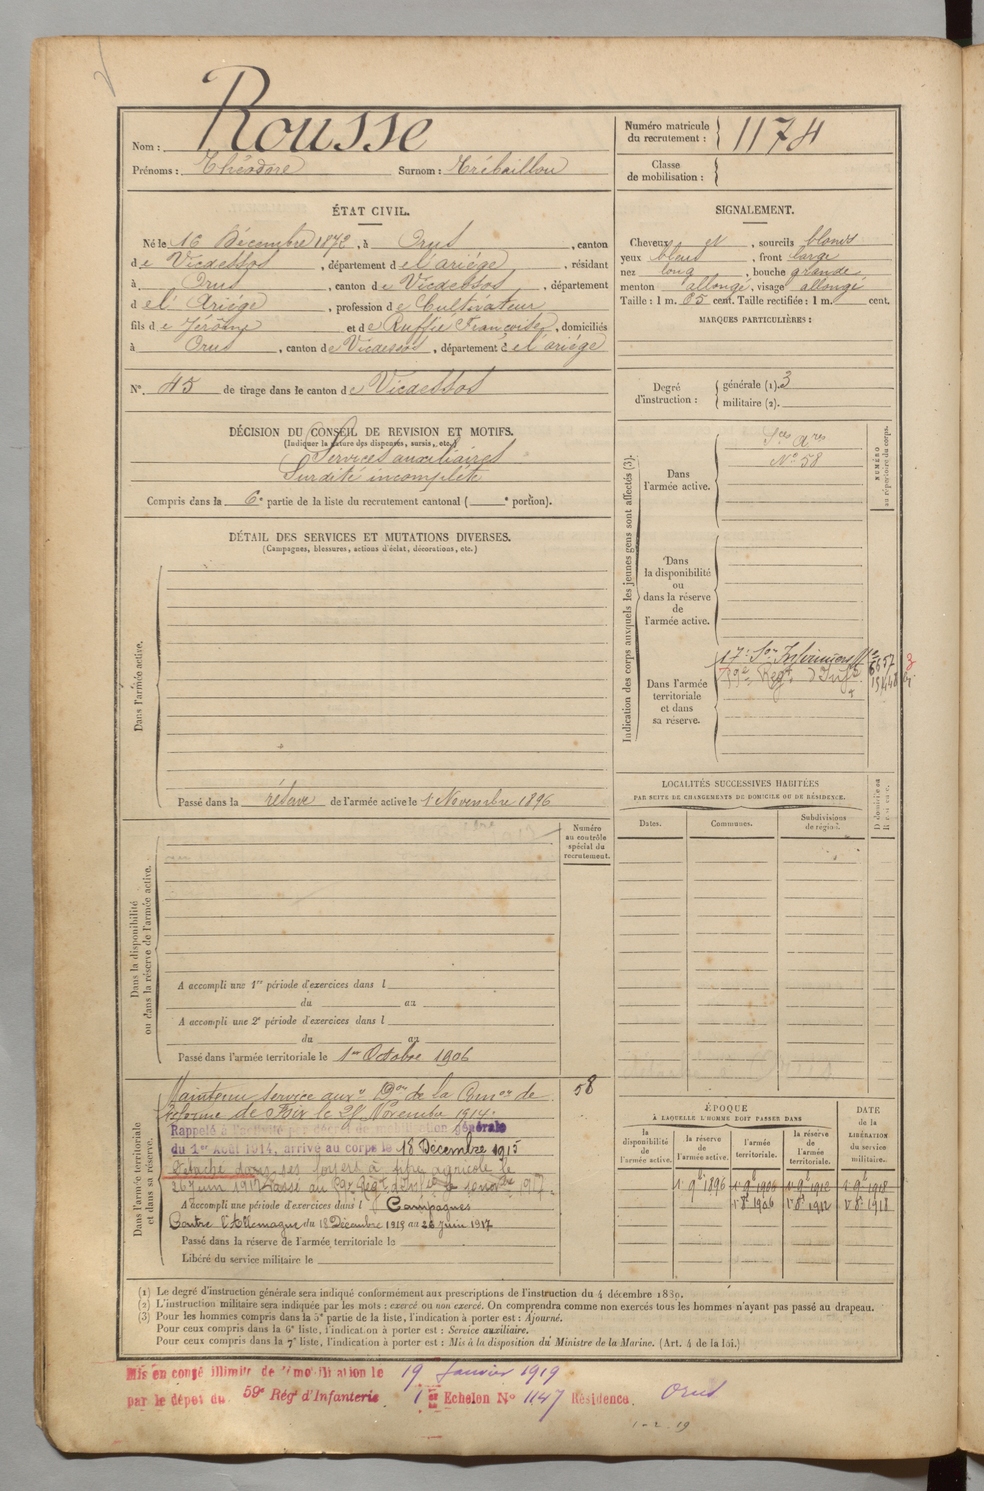 Nom : Rousse
Prénoms : Théodore Surnom : Trébaillou
Numéro matricule du recrutement : 1174
Classe de mobilisation :
ÉTAT CIVIL.
Né le 16 Décembre 1872, à Orus, canton
de Vicdessos, département de l'ariége, résidant
à Orus, canton de Vicdessos, département
de l'Ariége, profession de Cultivateur
fils de Jérôme et de Ruffié Françoise, domiciliés
à Orus, canton de Vicdessos, département de l'ariége
No. 45 de tirage dans le canton de Vicdessos
DÉCISION DU CONSEIL DE REVISION ET MOTIFS.
(Indiquer la nature des dispenses, sursis, etc.)
Services auxiliaires
Surdité incomplète
Compris dans la 6e partie de la liste du recrutement cantonal ( e portion).
DÉTAIL DES SERVICES ET MUTATIONS DIVERSES.
(Campagnes, blessures, actions d'éclat, décorations, etc.)
Dans l'armée active.
Passé dans la réserve de l'armée active le 1 Novembre 1896
Numéro au contrôle spécial du recrutement.
Dans la disponibilité ou dans la réserve de l'armée active.
A accompli une 1re période d'exercices dans l
du au
A accompli une 2e période d'exercices dans l
du au
Passé dans l'armée territoriale le 1er Octobre 1906
58
Dans l'armée territoriale et dans sa réserve.
Maintenu service auxre Don de la Comon de
Réforme de Foix le 28 Novembre 1914.
Rappelé à l'activité par décret de mobilisation générale
du 1er Août 1914, arrivé au corps le 18 Décembre 1915
Détaché dans ses foyers à titre agricole le
26 Juin 1917 Passé au
A accompli une période d'exercices dans l Campagnes
Contre l'Allemagne du 18 Décembre 1915 au 26 Juin 1917
Passé dans la réserve de l'armée territoriale le
Libéré du service militaire le
SIGNALEMENT.
Cheveux et, sourcils blonds
yeux bleus, front large
nez long, bouche grande,
menton allongé, visage allongé
Taille : 1 m. 65 cent. Taille rectifiée : 1 m. cent.
MARQUES PARTICULIÈRES :
Degré d'instruction : générale (1). 3
militaire (2).
Indication des corps auxquels les jeunes gens sont affectés (3).
NUMÉRO au répertoire du corps.
Dans l'armée active.
Sces Ares
No 58
Dans la disponibilité ou dans la réserve de l'armée active.
Dans l'armée territoriale et dans sa réserve.
17e Son Infirmiers
Regt d'Infie
LOCALITÉS SUCCESSIVES HABITÉES
PAR SUITE DE CHANGEMENTS DE DOMICILE OU DE RÉSIDENCE.
Dates. Communes. Subdivisions de région.
ÉPOQUE
À LAQUELLE L'HOMME DOIT PASSER DANS
la disponibilité de l'armée active. la réserve de l'armée active. l'armée territoriale. la réserve de l'armée territoriale.
DATE de la LIBÉRATION du service militaire.
1 9e 1896 1 9e 1906 1 9e 1912 1 9e 1918
1 8e 1906 1 8e 1912 1 8e 1918
(1) Le degré d'instruction générale sera indiqué conformément aux prescriptions de l'instruction du 4 décembre 1889.
(2) L'instruction militaire sera indiquée par les mots : exercé ou non exercé. On comprendra comme non exercés tous les hommes n'ayant pas passé au drapeau.
(3) Pour les hommes compris dans la 5e partie de la liste, l'indication à porter est : Ajourné.
Pour ceux compris dans la 6e liste, l'indication à porter est : Service auxiliaire.
Pour ceux compris dans la 7e liste, l'indication à porter est : Mis à la disposition du Ministre de la Marine. (Art. 4 de la loi.)
Mis en congé illimité de démobilisation le 19 Janvier 1919
par le dépôt du 59e Régt d'Infanterie 1er Echelon No 1147 Résidence Orus
1-2-19